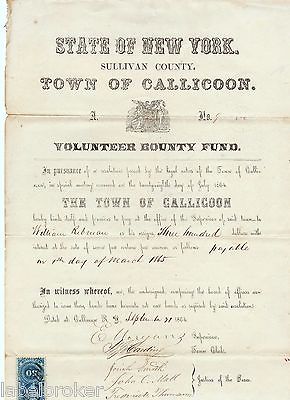 STATE OF NEW YORK.
SULLIVAN COUNTY.
TOWN OF CALLICOON.
A. No. 9
VOLUNTEER BOUNTY FUND.
In pursuance of a resolution passed by the legal voters of the Town of Calli-
coon, in special meeting convened on the twenty-ninth day of July 1864
THE TOWN OF CALLICOON
hereby binds itself and promises to pay at the office of the Supervisor of said town to
William or his assigns Three Hundred dollars with
interest at the rate of seven per centum per annum as follows: payable
on 1st day of March 1865
In witness whereof, we, the undersigned, composing the board of officers au-
thorized to issue these town bonds have hereunto set our hands as required by said resolutions.
Dated at Callicoon N. Y. September 21 1864
Supervisor,
Town Clerk.
Smith
John C. Mall
Frederick
Justices of the Peace.
labelbroker